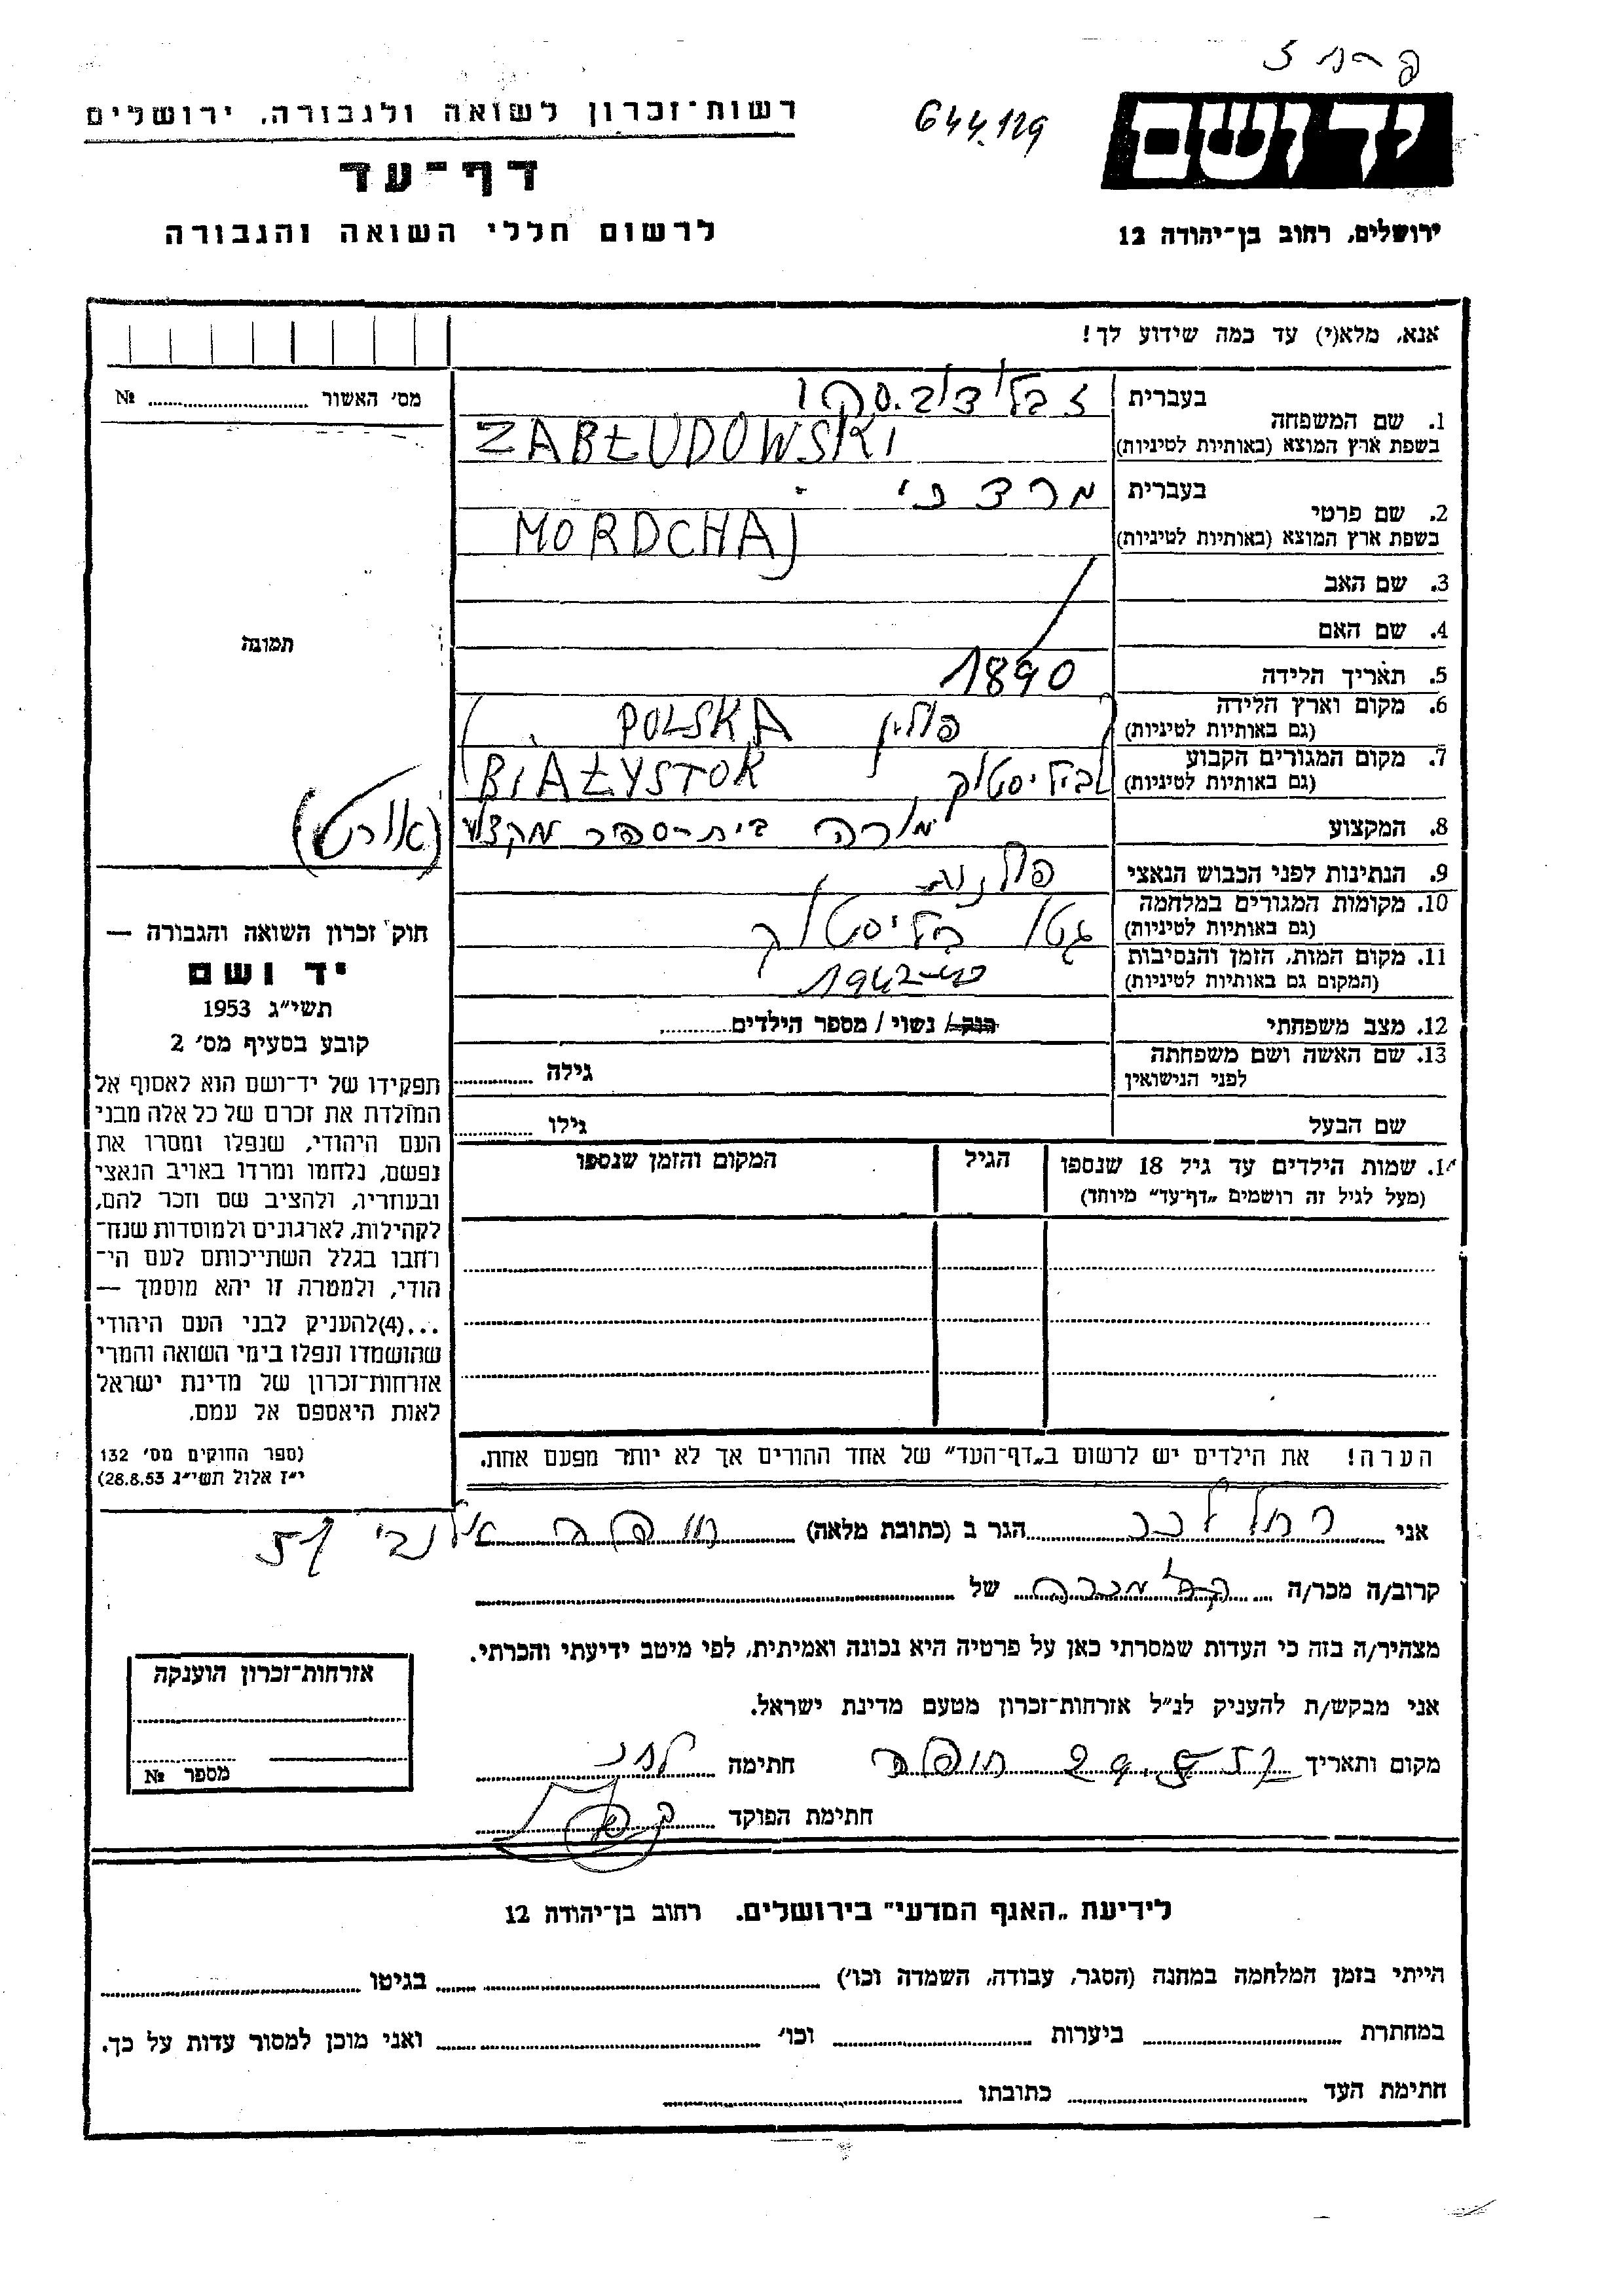 644.129
יד ושם
ירושלים, רחוב בן־יהודה 12
רשות־זכרון לשואה ולגבורה, ירושלים
דף־עד
לרשום חללי השואה והגבורה
אנא, מלא(י) עד כמה שידוע לך!
1. שם המשפחה
בעברית זבלודובסקי
בשפת ארץ המוצא (באותיות לטיניות) ZABŁUDOWSKI
2. שם פרטי
בעברית מרדכי
בשפת ארץ המוצא (באותיות לטיניות) MORDCHAJ
3. שם האב
4. שם האם
5. תאריך הלידה 1890
6. מקום וארץ הלידה
(גם באותיות לטיניות) פולין POLSKA
7. מקום המגורים הקבוע
(גם באותיות לטיניות) ביליסטוק BIAŁYSTOK
8. המקצוע מורה בית-ספר מקצועי (אורט)
9. הנתינות לפני הכבוש הנאצי פולנית
10. מקומות המגורים במלחמה
(גם באותיות לטיניות) גטו בליסטוק
11. מקום המות, הזמן והנסיבות
(המקום גם באותיות לטיניות) 1942
12. מצב משפחתי רוק/ נשוי / מספר הילדים
13. שם האשה ושם משפחתה
לפני הנישואין גילה
שם הבעל גילו
14. שמות הילדים עד גיל 18 שנספו
(מעל לגיל זה רושמים „דף־עד” מיוחד)
הגיל
המקום והזמן שנספו
הערה! את הילדים יש לרשום ב„דף־העד” של אחד ההורים אך לא יותר מפעם אחת.
מס׳ האשור №
תמונה
חוק זכרון השואה והגבורה —
יד ושם
תשי״ג 1953
קובע בסעיף מס׳ 2
תפקידו של יד־ושם הוא לאסוף אל
המולדת את זכרם של כל אלה מבני
העם היהודי, שנפלו ומסרו את
נפשם, נלחמו ומרדו באויב הנאצי
ובעוזריו, ולהציב שם וזכר להם,
לקהילות, לארגונים ולמוסדות שנח־
רחבו בגלל השתייכותם לעם הי־
הודי, ולמטרה זו יהא מוסמך —
...(4)להעניק לבני העם היהודי
שהושמדו ונפלו בימי השואה והמרי
אזרחות־זכרון של מדינת ישראל
לאות היאספם אל עמם.
(ספר החוקים מס׳ 132
י״ז אלול תשי״ג 28.8.53)
אני רחל הגר ב (כתובת מלאה) חיפה
קרוב/ה מכר/ה מכרה של
מצהיר/ה בזה כי העדות שמסרתי כאן על פרטיה היא נכונה ואמיתית, לפי מיטב ידיעתי והכרתי.
אני מבקש/ת להעניק לנ״ל אזרחות־זכרון מטעם מדינת ישראל.
מקום ותאריך חיפה חתימה
חתימת הפוקד
אזרחות־זכרון הוענקה
מספר №
לידיעת „האגף המדעי” בירושלים. רחוב בן־יהודה 12
הייתי בזמן המלחמה במחנה (הסגר, עבודה, השמדה וכו׳) בגיטו
במחתרת ביערות וכו׳ ואני מוכן למסור עדות על כך.
חתימת העד כתובתו